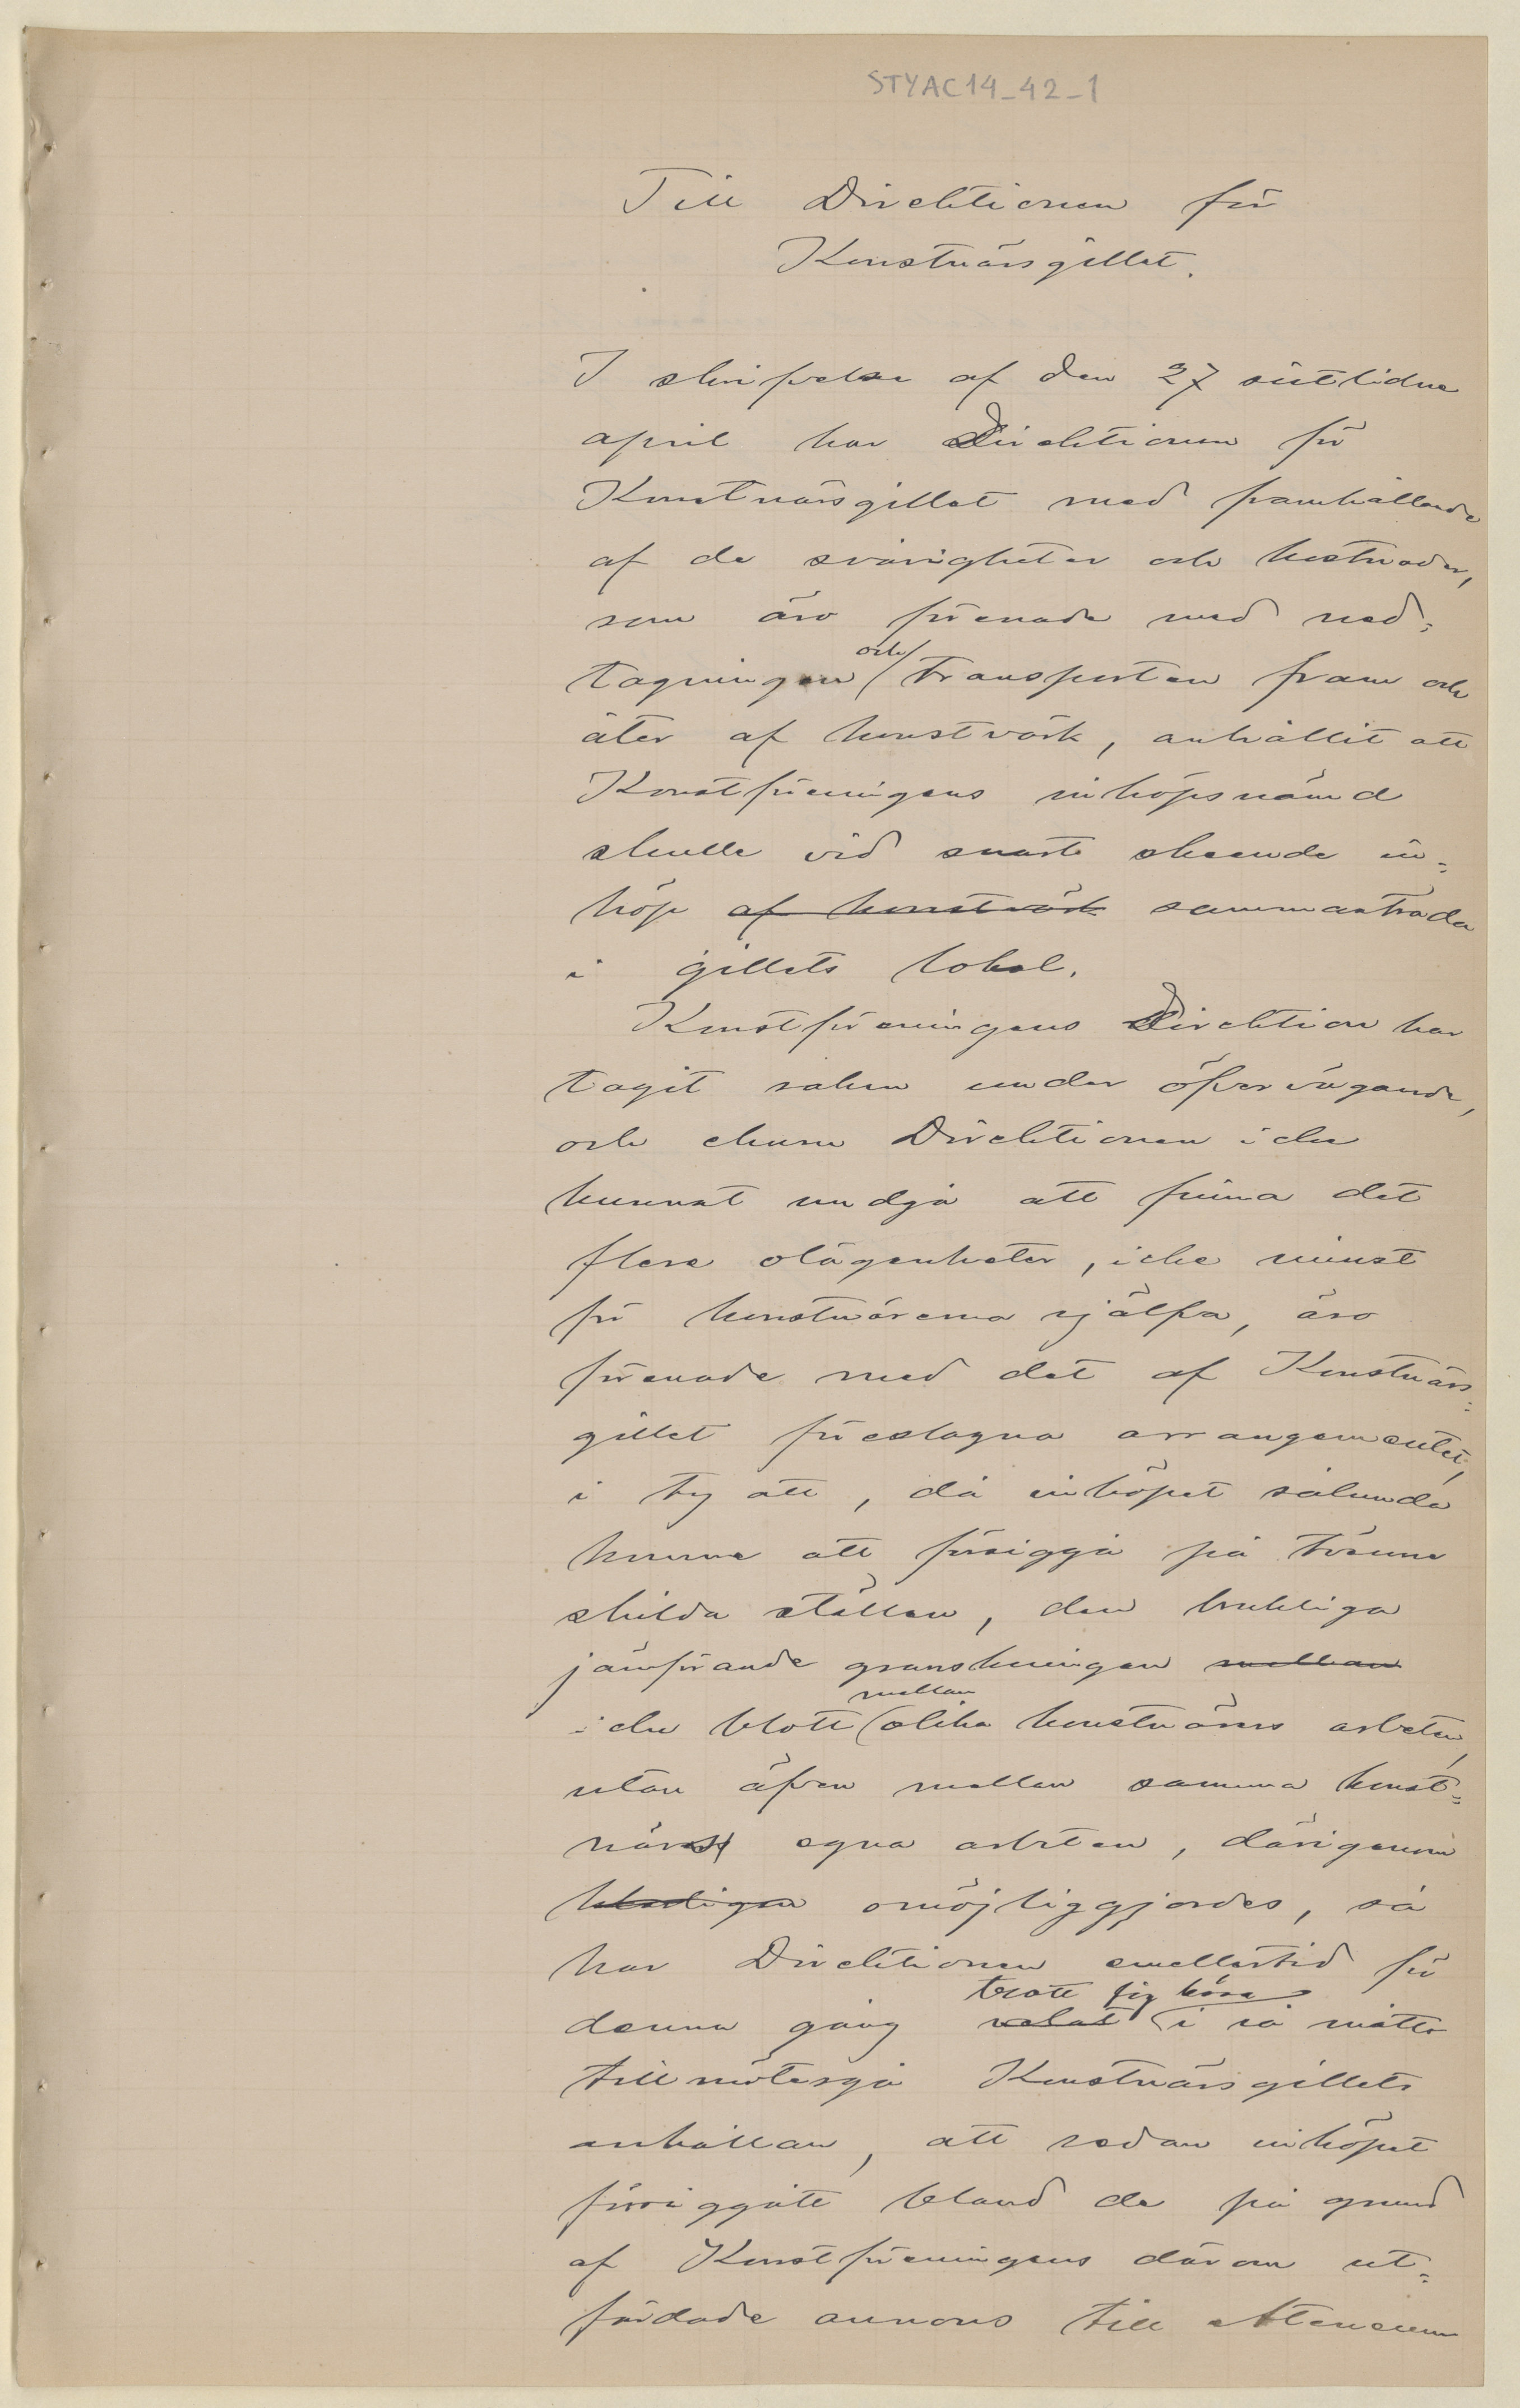 STYAC14_42_1
Till Direktionen för
Konstnärsgillet.
I skrifvelse af den 27 sistlidne
april har Direktionen för
Konstnärsgillet med framhållande
af de svårigheter och kostnader,
som äro förenade med ned=
och
tagningen transporten fram och
åter af konstvärk, anhållit att
Konstföreningens inköpsnämd
skulle vid snart skeende in=
köp af konstvärk sammanträda
i gillets lokal.
Konstföreningens Direktion har
tagit saken under öfvervägande,
och ehuru Direktionen icke
kunnat undgå att finna det
flere olägenheter, icke minst
för konstnärerna själfva, äro
förenade med det af Konstnärs=
gillet föreslagna arrangementet,
i ty att, då inköpet sålunda
komme att försiggå på tvänne
skilda ställen, den brukliga
jämförande granskningen mellan
mellan
icke blott olika konstnärers arbeten,
utan äfven mellan samma konst=
närs egna arbeten, därigenom
omöjliggjordes, så
har Direktionen emellertid för
trott sig böra
denna gång velat i så måtto
tillmötesgå Konstnärsgillets
anhållan, att sedan inköpet
försiggått bland de på grund
af Konstföreningens därom ut=
färdade annons till Ateneum